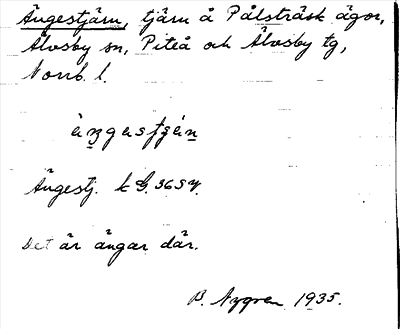 Ängestjärn, tjärn å Pålsträsk ägor,
Älvsby sn, Piteå och Älvsby tg,
Norrb. l.
Ängestj. k G. 365 y.
Det är ängar där.
B. Nygren 1935.